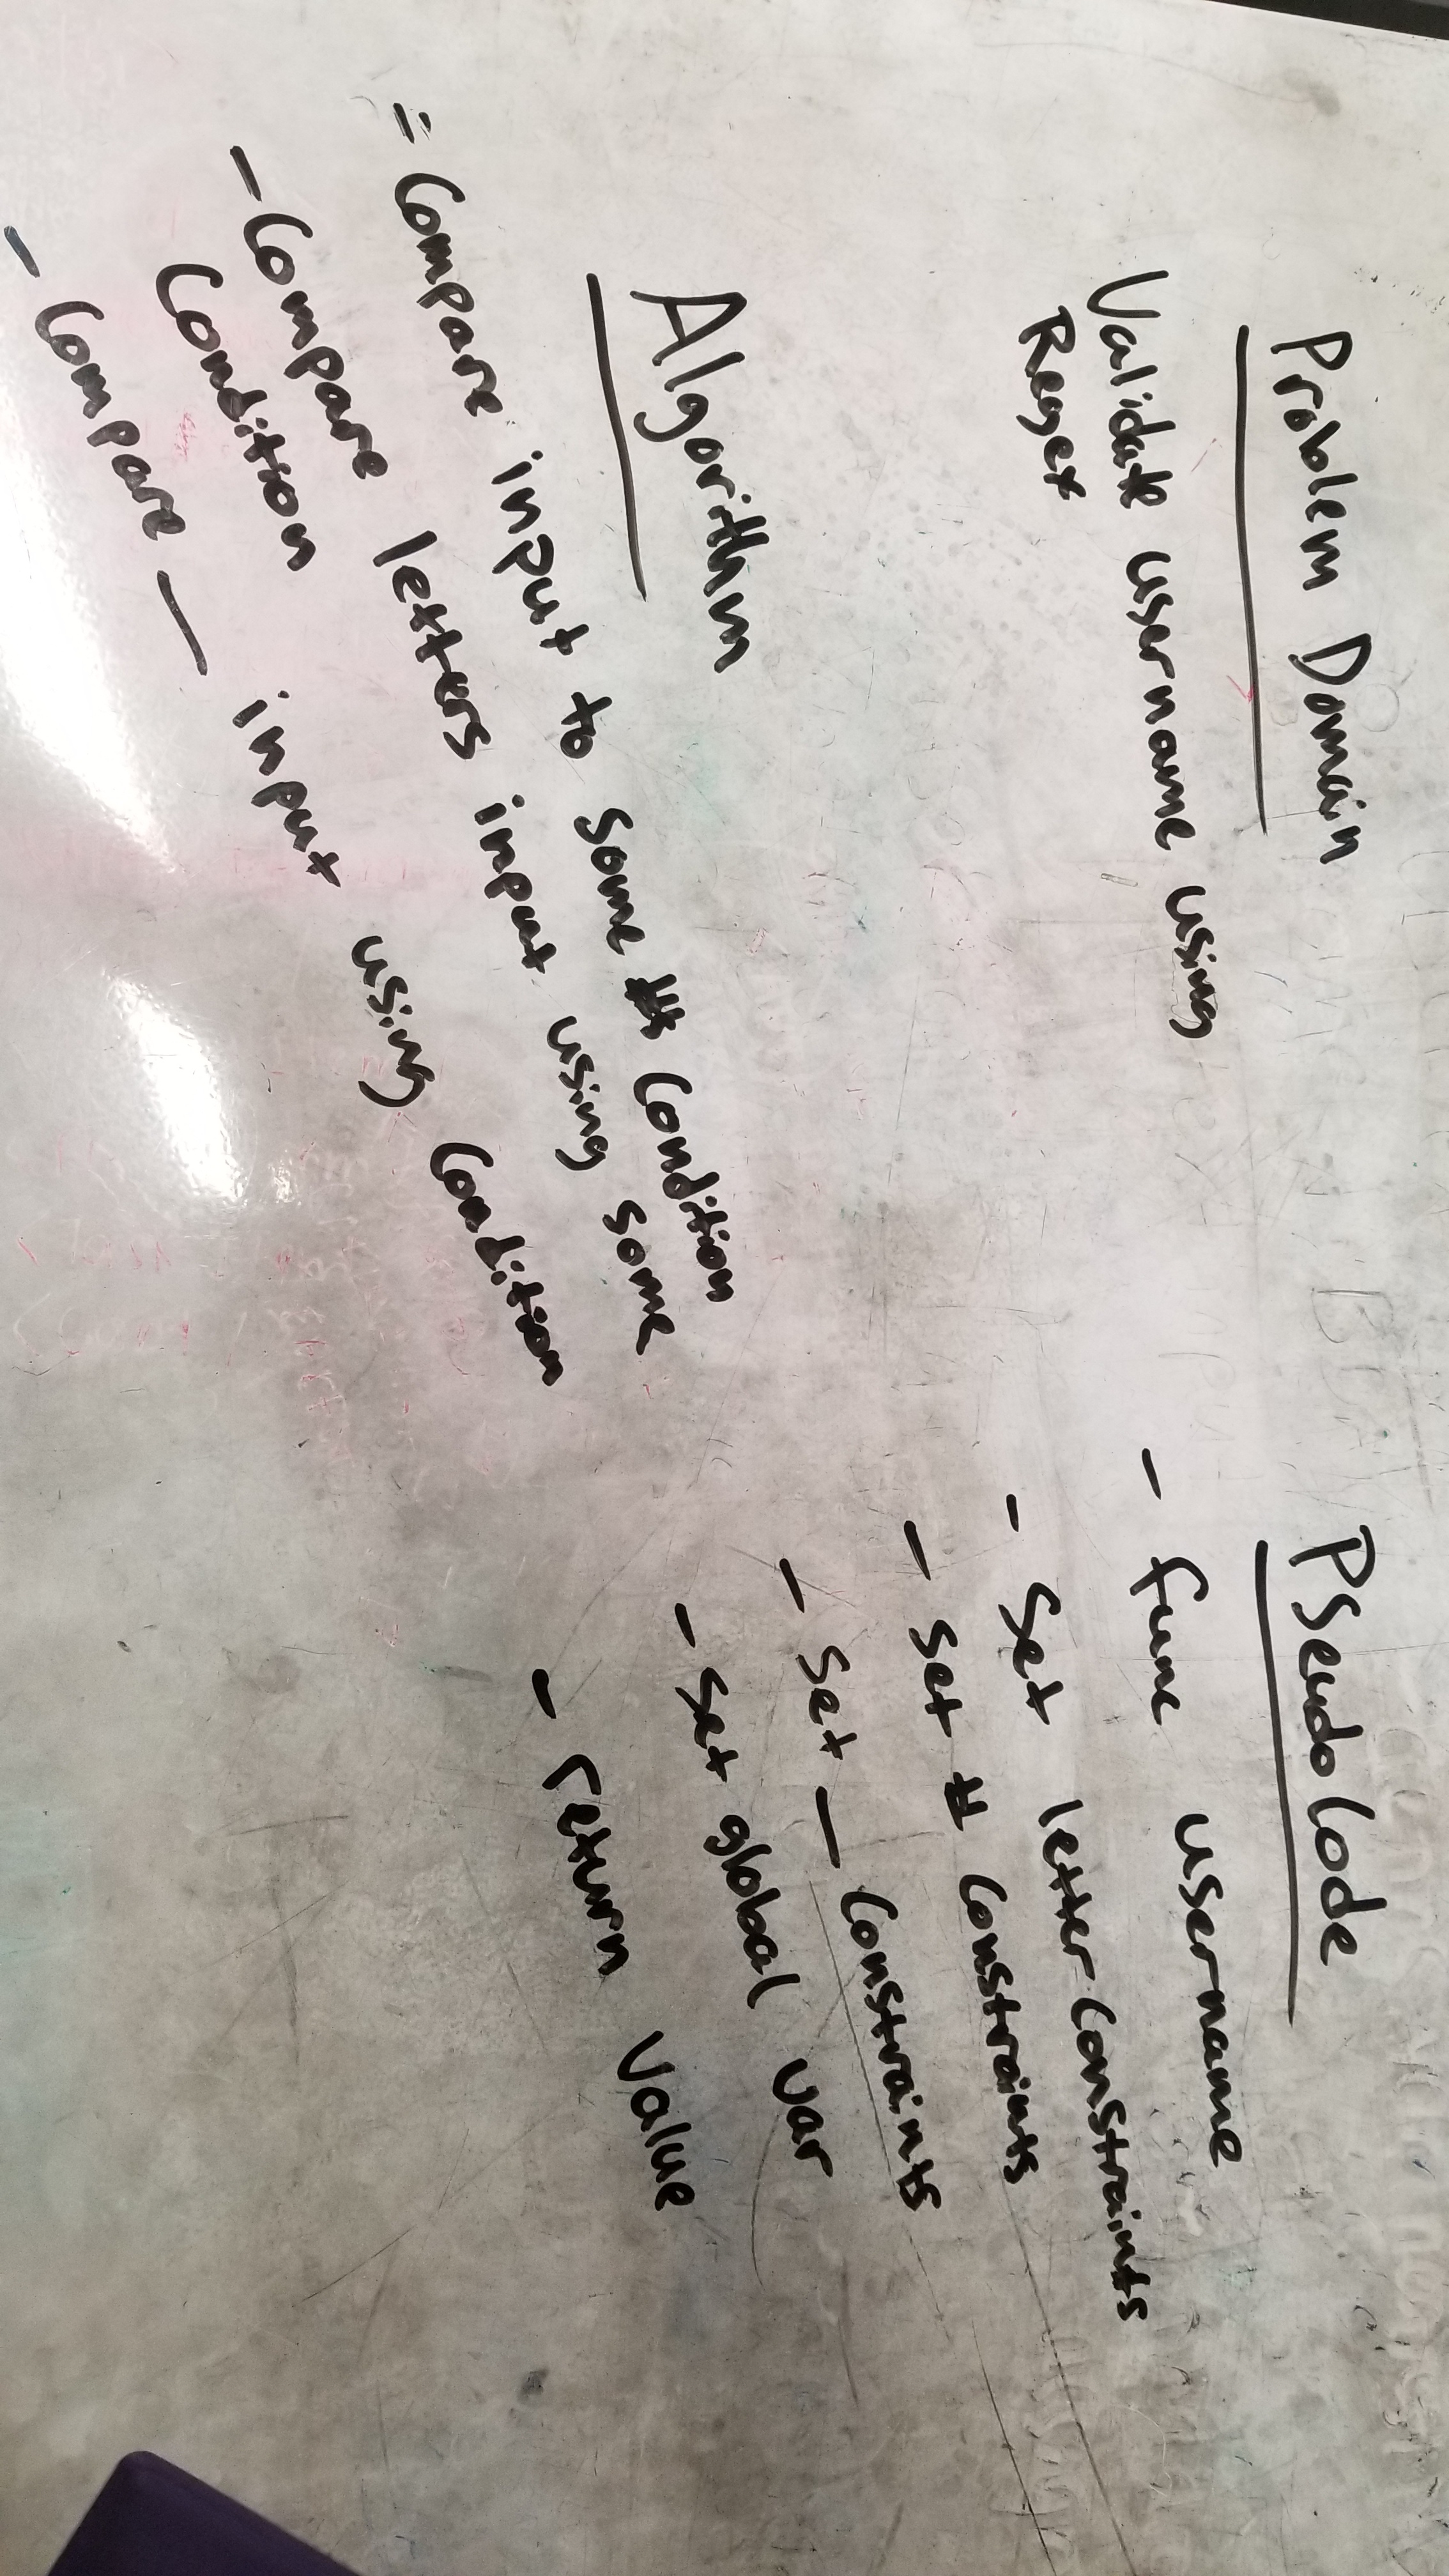 Problem Domain
Validate username using
Regex
Algorithm
= Compare input to some # Condition
- Compare letters input using some
Condition
- Compare _ input using Condition
Pseudo Code
- func username
- Set letter Constraints
- Set # Constraints
- Set _ Constraints
- Set global var
- return value